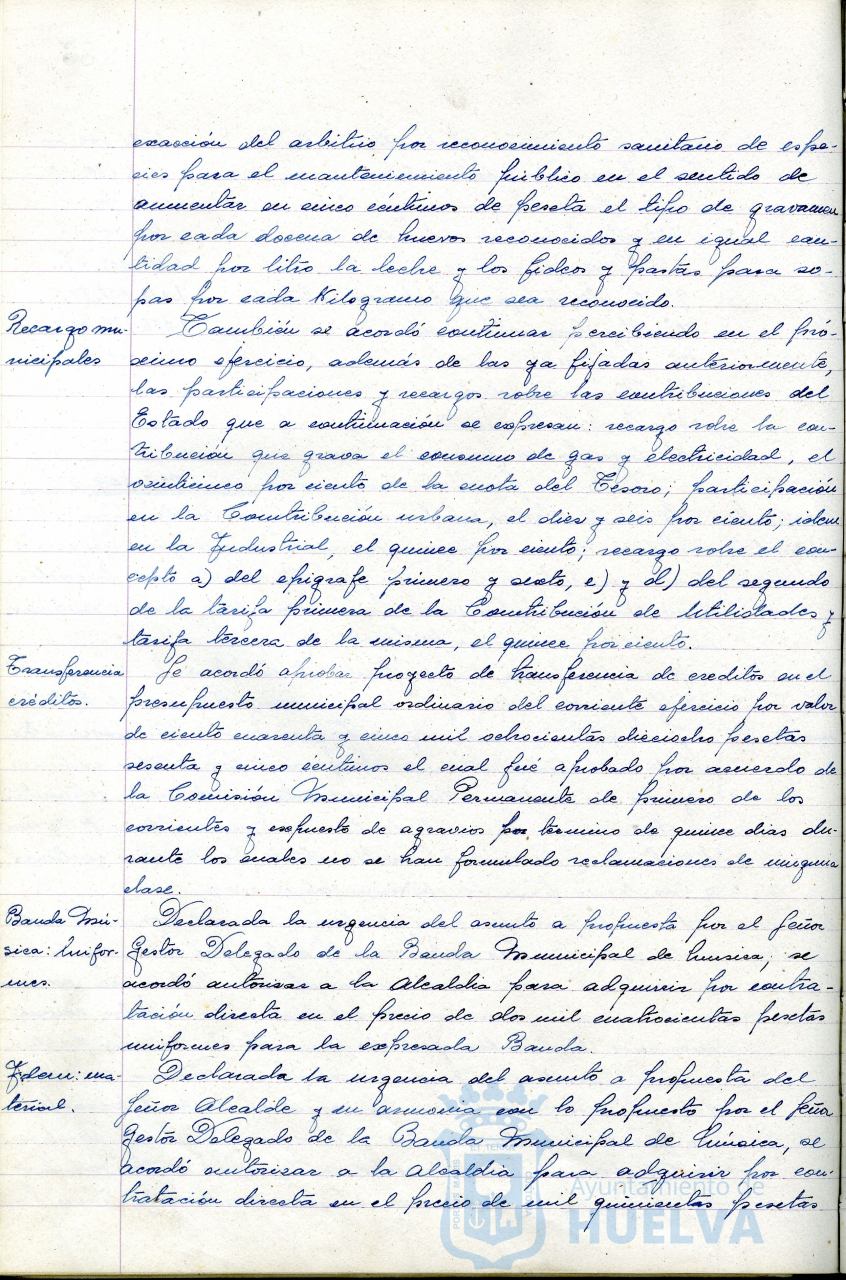 exacción del arbitrio por reconocimiento sanitario de espe-
cies para el mantenimiento público en el sentido de
aumentar en cinco céntimos de peseta el tipo de gravamen
por cada docena de huevos reconocidos y en igual can-
tidad por litro la leche y los fideos y pastas para so-
pas por cada Kilogramo que sea reconocido.
Recargo mu-
nicipales
También se acordó continuar percibiendo en el pró-
ximo ejercicio, además de las ya fijadas anteriormente,
las participaciones y recargos sobre las contribuciones del
Estado que a continuación se expresan: recargo sobre la con-
tribución que grava el consumo de gas y electricidad, el
veinticinco por ciento de la cuota del Tesoro; participación
en la Contribución urbana, el diez y seis por ciento; idem
en la Industrial, el quince por ciento; recargo sobre el con-
cepto a) del epigrafe primero y sexto, c) y d) del segundo
de la tarifa primera de la Contribución de Utilidades y
tarifa tercera de la misma, el quince por ciento.
Transferencia
créditos.
Se acordó aprobar proyecto de transferencia de creditos en el
presupuesto municipal ordinario del corriente ejercicio por valor
de ciento cuarenta y cinco mil ochocientas dieciocho pesetas
sesenta y cinco céntimos el cual fué aprobado por acuerdo de
la Comisión Municipal Permanente de primero de los
corrientes y expuesto de agravios por termino de quince dias du-
rante los cuales no se han formulado reclamaciones de ninguna
clase.
Banda Mú-
sica: Unifor-
mes.
Declarada la urgencia del asunto a propuesta por el Señor
Gestor Delegado de la Banda Municipal de música, se
acordó autorizar a la Alcaldia para adquirir por contra-
tación directa en el precio de dos mil cuatrocientas pesetas
uniformes para la expresada Banda.
Idem: ma-
terial.
Declarada la urgencia del asunto a propuesta del
Señor Alcalde y en armonia con lo propuesto por el Señor
Gestor Delegado de la Banda Municipal de Música, se
acordó autorizar a la Alcaldia para adquirir por con-
tratación directa en el precio de mil quinientas pesetas
Ayuntamiento de
HUELVA